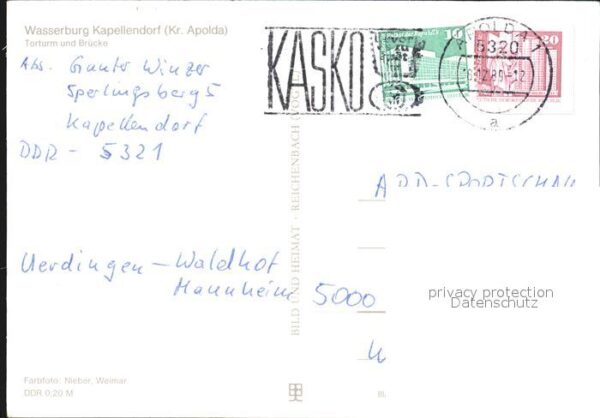 Wasserburg Kapellendorf (Kr. Apolda)
Torturm und Brücke
Abs. Günter Winzer
Sperlingsberg 5
Kapellendorf
DDR - 5321
KASKO
10
20
APOLDA 1
5320
a
BILD UND HEIMAT · REICHENBACH (VOGTL
ARD-SPORTSCHAU
Uerdingen - Waldhof
Mannheim 5000
privacy protection
Datenschutz
Farbfoto: Nieber, Weimar
DDR 0,20 M